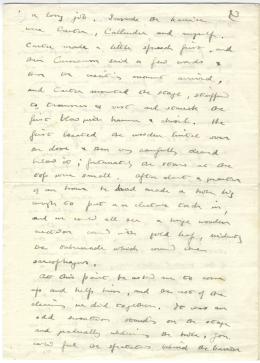 a long job. Inside the barrier
were Carter, Callender and myself.
Carter made a little speech first, and
then Carnarvon said a few words &
then the exciting moment arrived,
and Carter mounted the stage, stripped
to trousers & vest and struck the
first blow with hammer & chisel. He
first located the wooden lintel over
the door & then very carefully cleared
below it; fortunately the stones at the
top were small. After about a quarter
of an hour he had made a hole big
enough to put an electric torch in,
and we could all see a huge wooden
covered with gold leaf, evidently
the outermost which would
sarcophagus.
At this point he asked me to come
up and help him, and the rest of the
clearing we did together. It was an
odd sensation standing on the stage
and gradually widening the hole. You
could feel the spectators behind the barrier